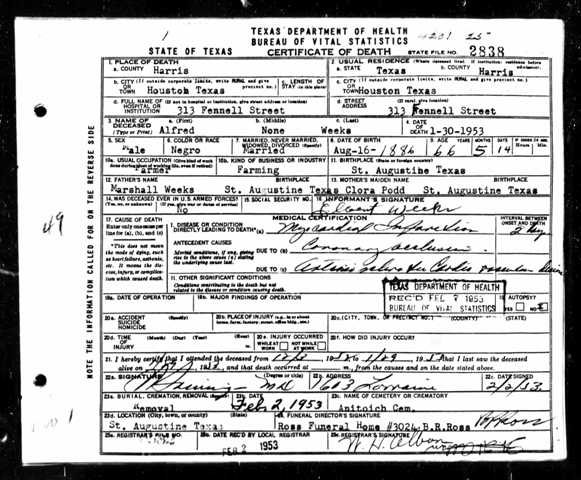 TEXAS DEPARTMENT OF HEALTH
BUREAU OF VITAL STATISTICS
STATE OF TEXAS CERTIFICATE OF DEATH STATE FILE NO. 2838
1. PLACE OF DEATH
a. COUNTY Harris
2. USUAL RESIDENCE (Where deceased lived. If institution: residence before admission).
a. STATE Texas b. COUNTY Harris
b. CITY (If outside corporate limits, write RURAL and give precinct no.) OR TOWN Houston Texas
c. LENGTH OF STAY (in this place)
c. CITY (If outside corporate limits, write RURAL and give precinct no.) OR TOWN Houston Texas
d. FULL NAME OF (If not in hospital or institution, give street address or location) HOSPITAL OR INSTITUTION 313 Fennell Street
d. STREET ADDRESS (If rural, give location) 313 Fennell Street
3. NAME OF DECEASED (Type or Print)
a. (First) Alfred b. (Middle) None c. (Last) Weeks
4. DATE OF DEATH 1-30-1953
5. SEX Male
6. COLOR OR RACE Negro
7. MARRIED, NEVER MARRIED, WIDOWED, DIVORCED (Specify) Married
8. DATE OF BIRTH Aug-16-1886
9. AGE YEARS 66 MONTHS 5 DAYS 14
10a. USUAL OCCUPATION (Give kind of work done during most of working life, even if retired) Farmer
10b. KIND OF BUSINESS OR INDUSTRY Farming
11. BIRTHPLACE (State or foreign country) St. Augustine Texas
12. FATHER'S NAME BIRTHPLACE
13. MOTHER'S MAIDEN NAME BIRTHPLACE
Marshall Weeks St. Augustine Texas Clora Podd St. Augustine Texas
14. WAS DECEASED EVER IN U.S. ARMED FORCES? (Yes, no, or unknown) (If yes, give war or dates of service) No
15. SOCIAL SECURITY NO.
16. INFORMANT'S SIGNATURE Weeks
MEDICAL CERTIFICATION
INTERVAL BETWEEN ONSET AND DEATH
17. CAUSE OF DEATH
Enter only one cause per line for (a), (b), and (c)
I. DISEASE OR CONDITION DIRECTLY LEADING TO DEATH* (a) Myocardial Infarction
*This does not mean the mode of dying, such as heart failure, asthenia, etc. It means the disease, injury, or complication which caused death.
ANTECEDENT CAUSES
Morbid conditions, if any, giving rise to the above cause (a) stating the underlying cause last.
DUE TO (b) Coronary occlusion
DUE TO (c)
II. OTHER SIGNIFICANT CONDITIONS
Conditions contributing to the death but not related to the disease or condition causing death.
TEXAS DEPARTMENT OF HEALTH
REC'D FEB 7 1953
BUREAU OF VITAL STATISTICS
18a. DATE OF OPERATION
18b. MAJOR FINDINGS OF OPERATION
19. AUTOPSY YES NO
20a. ACCIDENT SUICIDE HOMICIDE (Specify)
20b. PLACE OF INJURY (e.g., in or about home, farm, factory, street, office bldg., etc.)
20c. (CITY, TOWN, OR PRECINCT NO.) (COUNTY) (STATE)
20d. TIME OF INJURY (Month) (Day) (Year) (Hour)
20e. INJURY OCCURRED WHILE AT WORK NOT WHILE AT WORK
20f. HOW DID INJURY OCCUR?
21. I hereby certify that I attended the deceased from that I last saw the deceased
alive on and that death occurred at m., from the causes and on the date stated above.
22a. SIGNATURE (Degree or title) MD
22b. ADDRESS 7603 Lorraine
22c. DATE SIGNED 2/2/53
23a. BURIAL, CREMATION, REMOVAL (Specify) Removal
23b. DATE Feb 2, 1953
23c. NAME OF CEMETERY OR CREMATORY Anitoich Cem.
23d. LOCATION (City, town, or county) (State) St. Augustine Texas
24. FUNERAL DIRECTOR'S SIGNATURE Ross Funeral Home #3024 B.R.Ross
25a. REGISTRAR'S FILE NO.
25b. DATE REC'D BY LOCAL REGISTRAR FEB 2 1953
25c. REGISTRAR'S SIGNATURE
NOTE THE INFORMATION CALLED FOR ON THE REVERSE SIDE
49